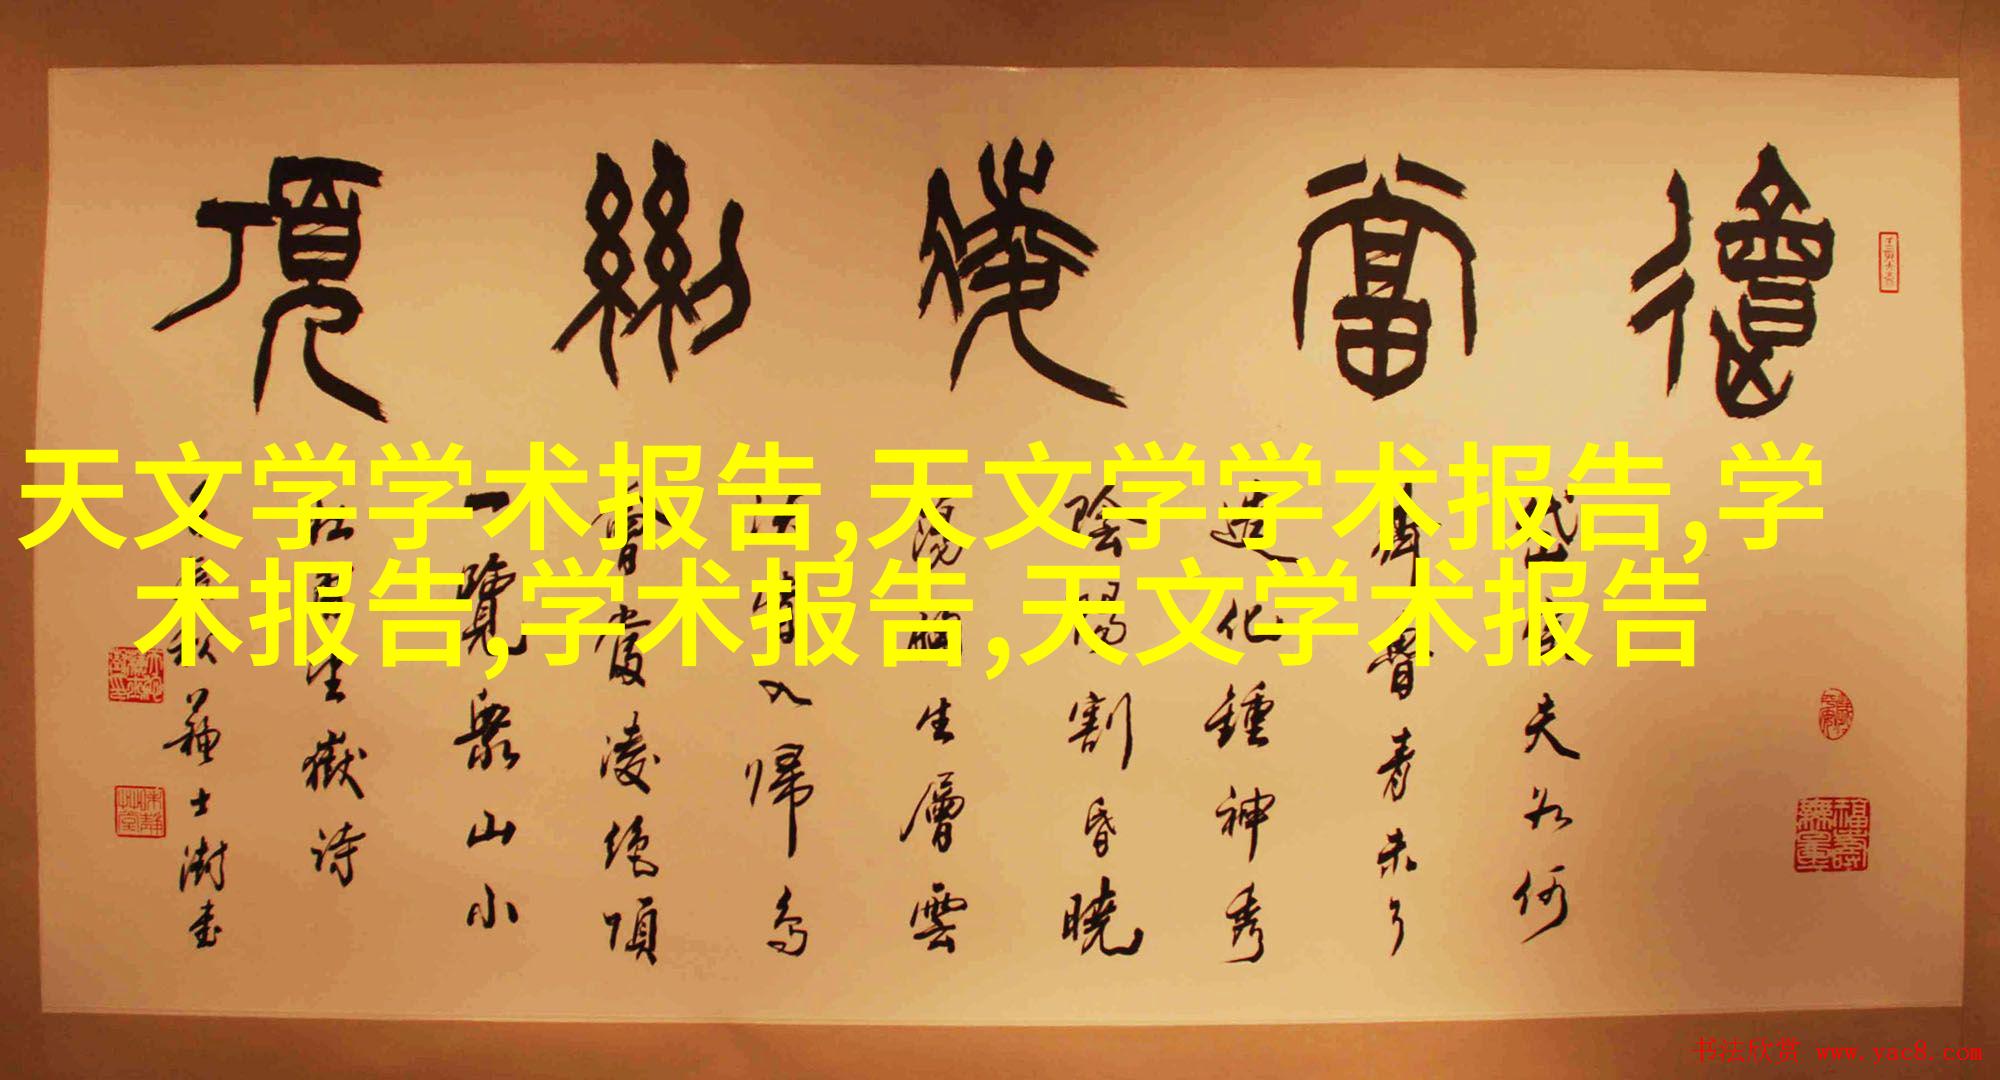 會當凌絕頂
天文学学术报告,天文学学术报告,学
术报告,学术报告,天文学术报告
岱宗夫如何
齊魯青未了
造化鍾神秀
陰陽割昏曉
蕩胸生層雲
決眥入歸鳥
會當凌絕頂
一覽眾山小
杜甫望嶽詩
辰秋蘇士澍書
福壽無量
书法欣赏 www.yac8.com